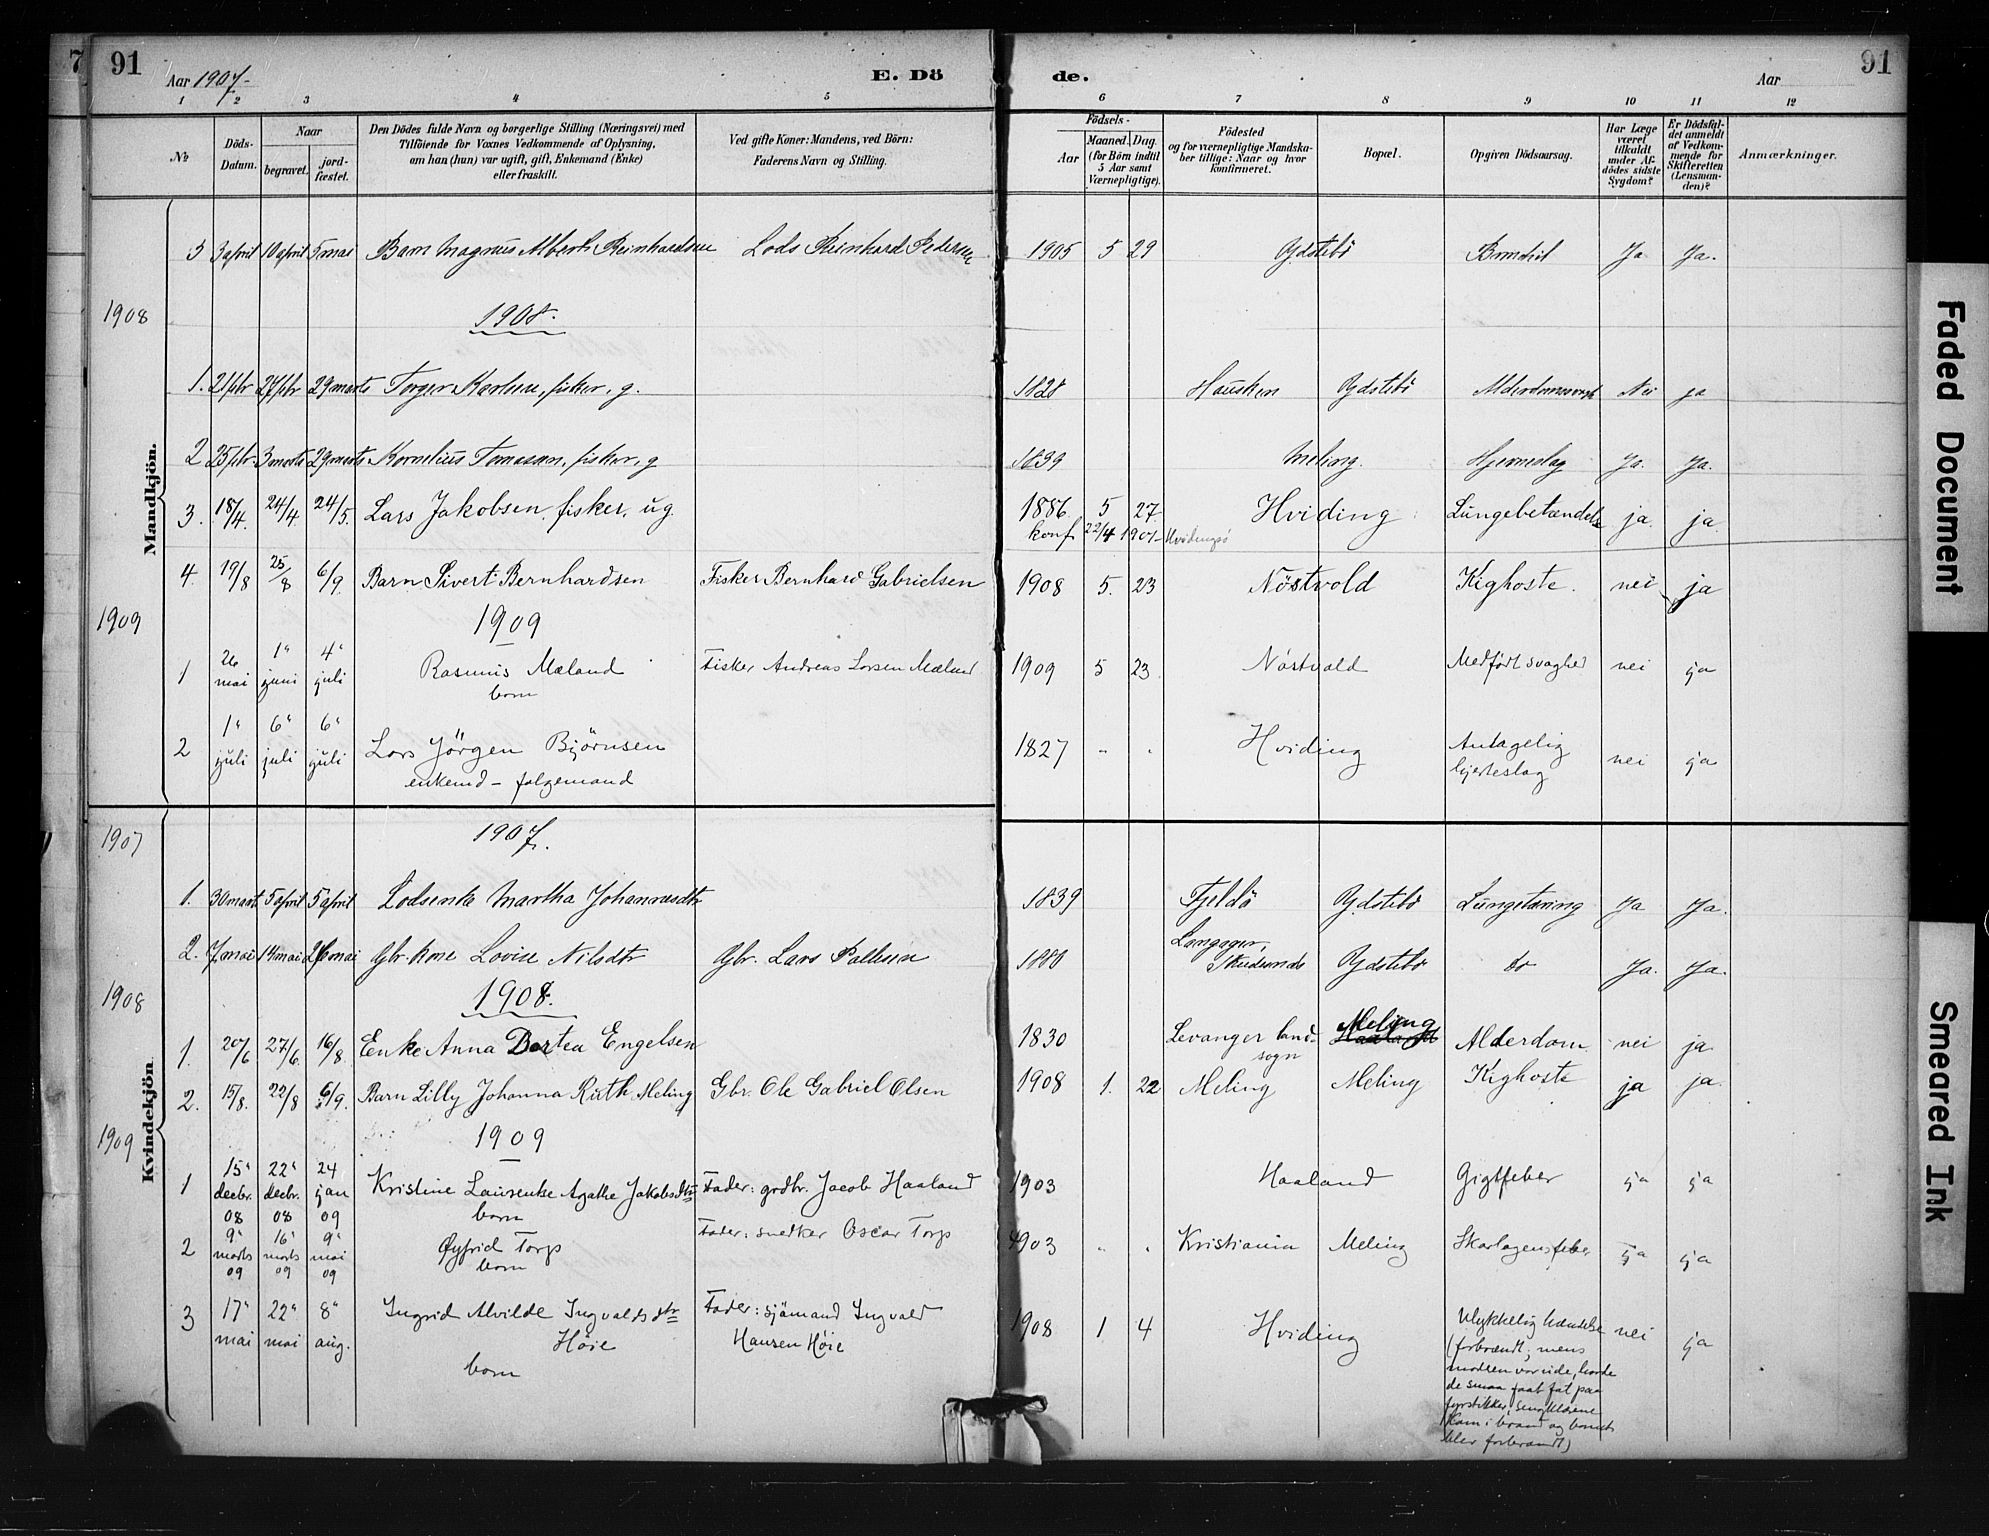 7 91 Aar 1907. E. Dö de. Aar 91
1 2 3 4 5 6 7 8 9 10 11 12
No
Döds-Datum.
Naar
begravet. jordfæstet.
Den Dödes fulde Navn og borgerlige Stilling (Næringsvei) med
Tilföiende for Voxnes Vedkommende af Oplysning,
om han (hun) var ugift, gift, Enkemand (Enke)
eller fraskilt.
Ved gifte Koner: Mandens, ved Börn:
Faderens Navn og Stilling.
Födsels-
Aar
Maaned. Dag.
(for Börn indtil
5 Aar samt
Værnepligtige).
Födested
og for værnepligtige Mandskaber tillige: Naar og hvor
konfirmeret.
Bopæl.
Opgiven Dödsaarsag.
Har Læge
været
tilkaldt
under Afdödes sidste
Sygdom?
Er Dödsfaldet anmeldt
af Vedkommende for
Skifteretten
(Lensmanden)?
Anmærkninger.
Mandkjön.
3 3 april 10 april 5 mai Barn Magnus Albert Reinhardsen Lods Reinhard Pedersen 1905 5 29 Ydstebö Ja Ja.
1908
1908.
1. 21 fbr 27 fbr 29 marts Torger Karlsen, fisker, g. 1828 Hausken Ydstebö Nei ja
2 25 fbr. 3 marts 29 marts Kornelius Tomassen, fisker, g 1839 Meling. Hjerneslag Ja. Ja.
3. 18/4. 24/4 24/5. Lars Jakobsen, fisker, ug. 1886 5 27 Hviding Lungebetændelse ja. ja
konf. 22/4 1901 Hvidingsö
4. 19/8 25/8 6/9. Barn Sivert Bernhardsen Fisker Bernhard Gabrielsen 1908 5. 23 Nöstvold Kighoste. nei ja
1909
1909
1 26 mai 1" juni 4" juli Rasmus Mæland Fisker Andreas Larsen Mæland 1909 5 23 Nöstvold Medfödt svaghed nei ja
barn
2 1" juli 6" juli 6" juli Lars Jörgen Björnsen 1827 " " Hviding Antagelig hjerteslag nei ja
enkemd – folgemand
Kvindekjön
1907
1907.
1. 30 mart 5 april 5 april Lodsenke Martha Johannesdtr 1839 Fjeldö Ydstebö Lungetæring Ja Ja.
2. 7 mai 14 mai 26 mai Gbr. kone Lovise Nilsdtr Gbr. Lars Pallesen Skudesnæs Ydstebö do Ja. Ja.
1908
1908.
1. 20/6 27/6. 16/8. Enke Anna Dortea Engelsen 1830 Levanger landsogn Meling Alderdom nei ja.
2. 15/8. 22/8 6/9. Barn Lilly Johanna Ruth Meling Gbr. Ole Gabriel Olsen 1908 1. 22 Meling Meling Kighoste ja ja.
1909
1909
1 15" decbr. 08 22" decbr. 08 24 jan 09 Kristine Laurentse Agathe Jakobsdtr Fader: grdbr. Jacob Haaland 1903 Haaland Gigtfeber ja ja
barn
2 9" marts 09 16" marts 09 9" mai 09 Öyfrid Torp Fader: snedker Oscar Torp 1903 " " Kristiania Meling Skarlagensfeber ja ja
barn
3 17" mai 22" mai 8" aug. Ingrid Alvilde Ingvaldsdtr Höie Fader: sjömand Ingvald Hansen Höie 1908 1 4 Hviding Ulykkelig hændelse nei ja
barn
(forbrændt; mens
modeen var ude, havde
de smaa faat fat paa
fyrstikker, sengklærne
kom i brand og barnet
blev forbrændt)
Faded Document
Smeared Ink